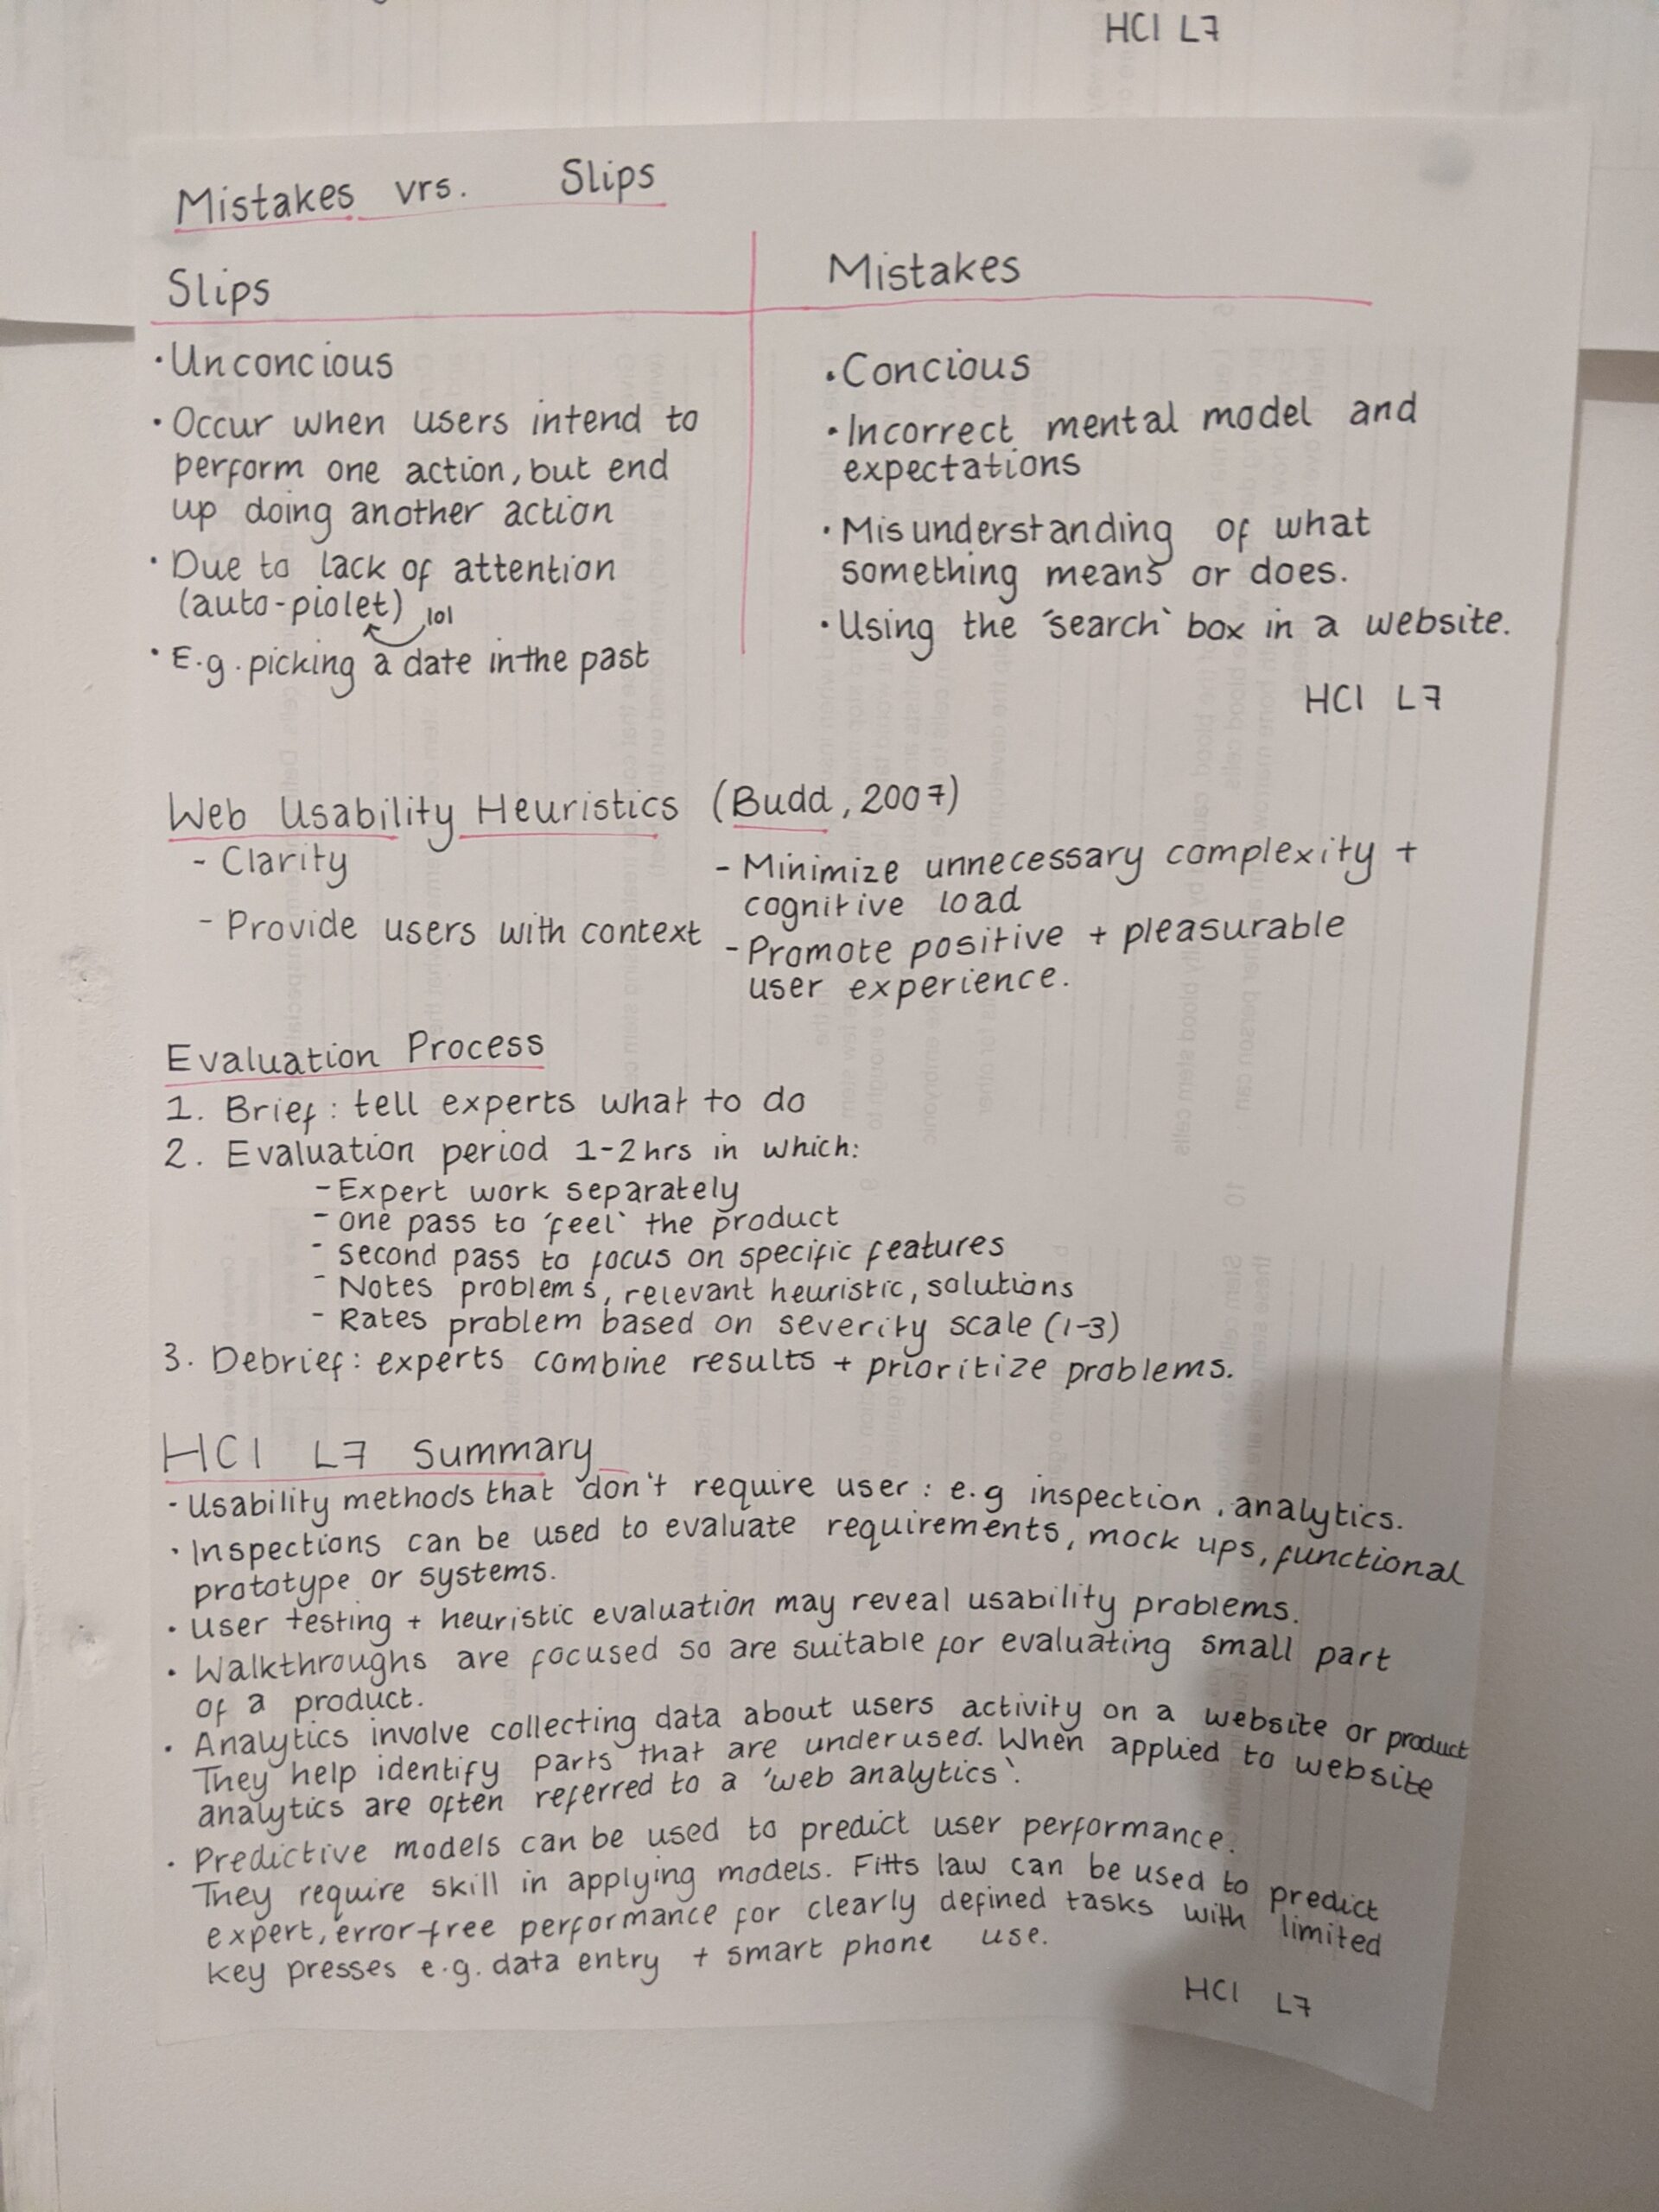 HCI L7
Mistakes vrs. Slips
Slips
· Unconcious
· Occur when users intend to
perform one action, but end
up doing another action
· Due to lack of attention
(auto-piolet) lol
· E.g. picking a date in the past
Mistakes
· Concious
· Incorrect mental model and
expectations
· Misunderstanding of what
something means or does.
· Using the 'search' box in a website.
HCI L7
Web Usability Heuristics (Budd, 2007)
- Clarity
- Provide users with context
- Minimize unnecessary complexity +
cognitive load
- Promote positive + pleasurable
user experience.
Evaluation Process
1. Brief: tell experts what to do
2. Evaluation period 1-2hrs in which:
- Expert work separately
- One pass to 'feel' the product
- Second pass to focus on specific features
- Notes problems, relevant heuristic, solutions
- Rates problem based on severity scale (1-3)
3. Debrief: experts combine results + prioritize problems.
HCI L7 Summary
· Usability methods that don't require user: e.g inspection, analytics.
· Inspections can be used to evaluate requirements, mock ups, functional
prototype or systems.
· User testing + heuristic evaluation may reveal usability problems.
· Walkthroughs are focused so are suitable for evaluating small part
of a product.
· Analytics involve collecting data about users activity on a website or product
They help identify parts that are underused. When applied to website
analytics are often referred to a 'web analytics'.
· Predictive models can be used to predict user performance.
They require skill in applying models. Fitts law can be used to predict
expert, error-free performance for clearly defined tasks with limited
key presses e.g. data entry + smart phone use.
HCI L7